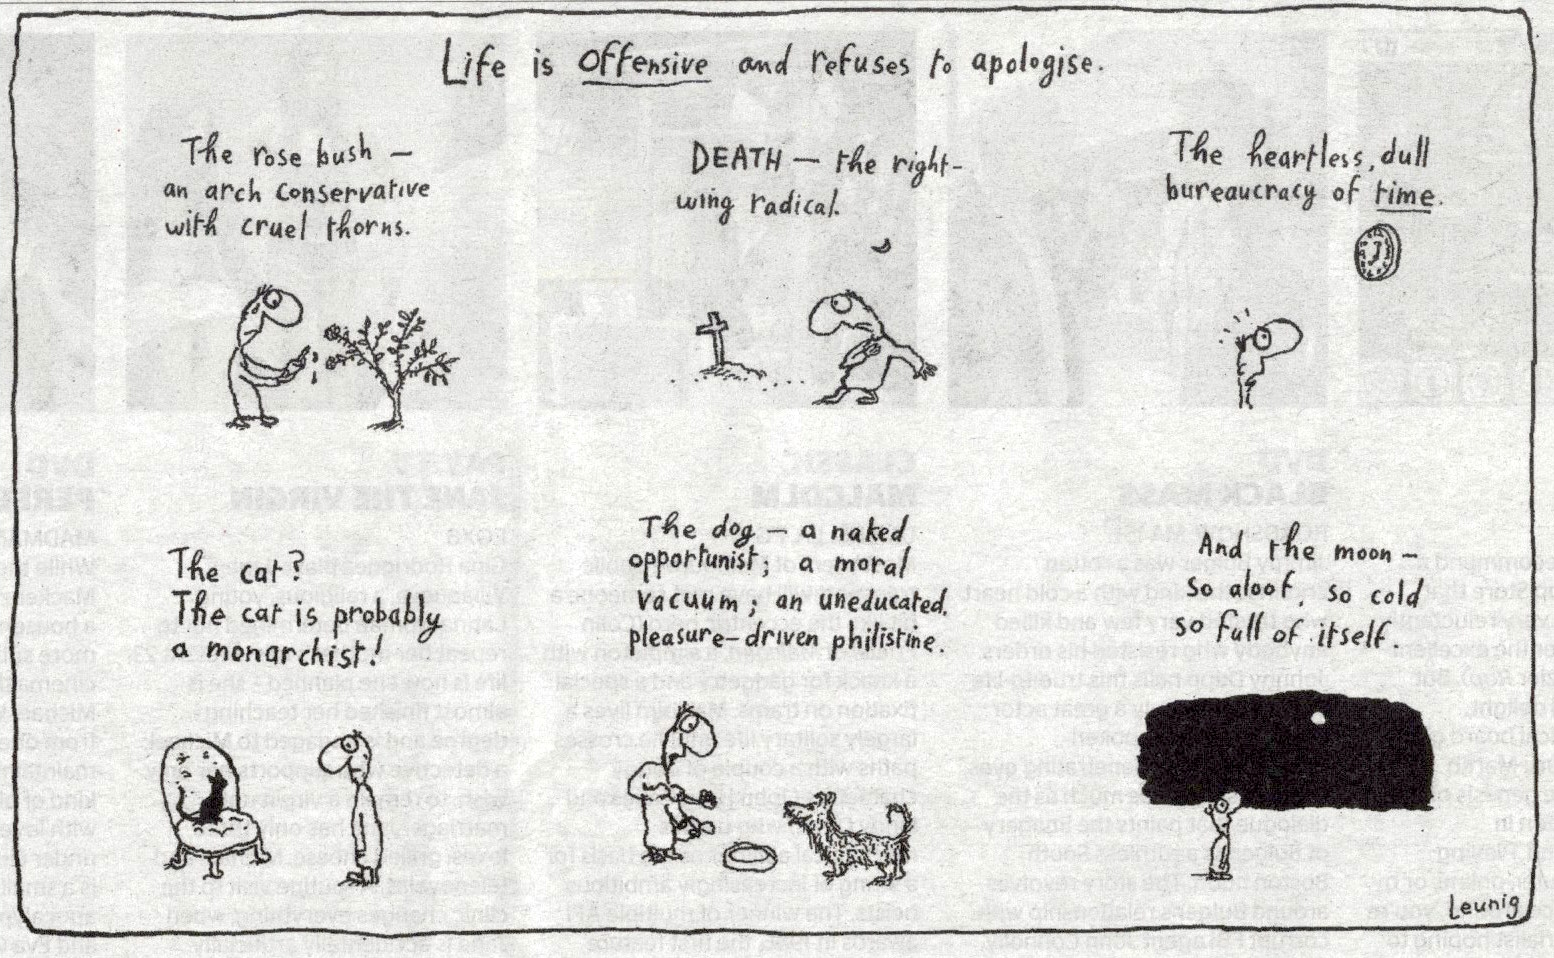 Life is offensive and refuses to apologise.
The rose bush –
an arch conservative
with cruel thorns.
DEATH – the right-
wing radical.
The heartless, dull
bureaucracy of time.
The cat?
The cat is probably
a monarchist!
The dog – a naked
opportunist; a moral
vacuum; an uneducated,
pleasure-driven philistine.
And the moon –
so aloof, so cold
so full of itself.
Leunig